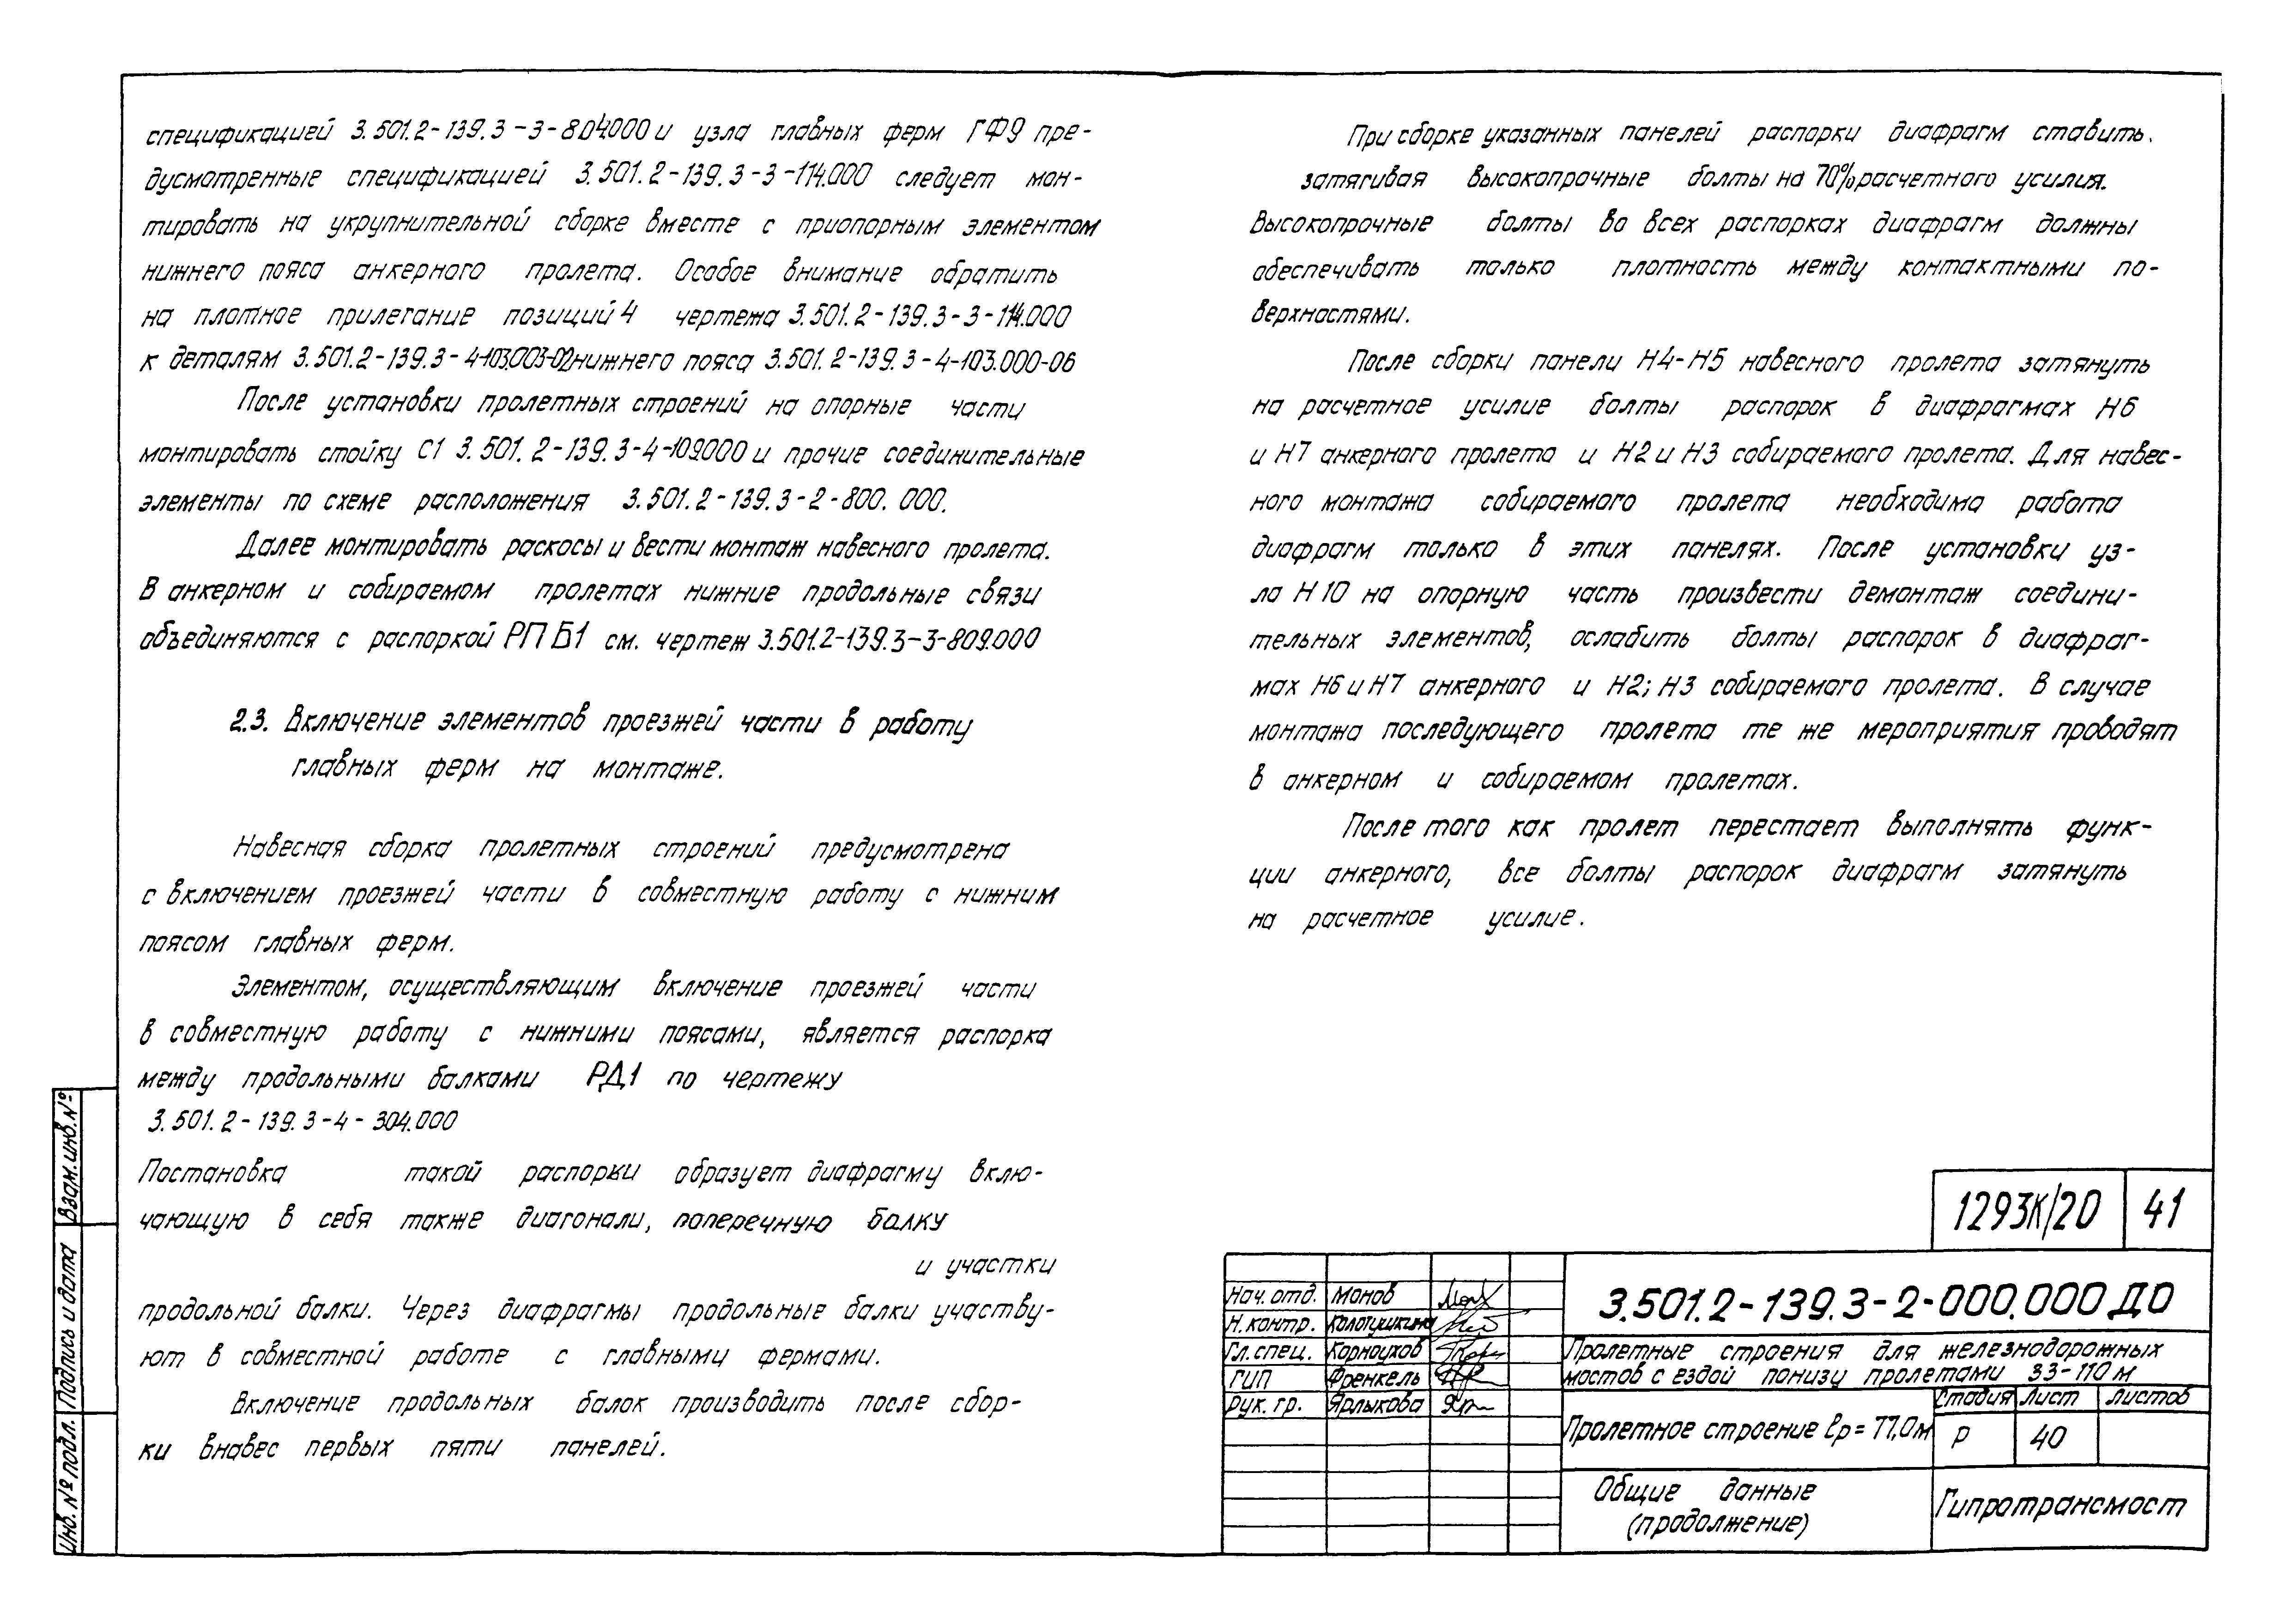 спецификацией 3.501.2-139.3-3-804.000 и узла главных ферм ГФ9 пре-
дусмотренные спецификацией 3.501.2-139.3-3-114.000 следует мон-
тировать на укрупнительной сборке вместе с приопорным элементом
нижнего пояса анкерного пролета. Особое внимание обратить
на плотное прилегание позиций 4 чертежа 3.501.2-139.3-3-114.000
к деталям 3.501.2-139.3-4-103.003-02 нижнего пояса 3.501.2-139.3-4-103.000-06
После установки пролетных строений на опорные части
монтировать стойку С1 3.501.2-139.3-4-109.000 и прочие соединительные
элементы по схеме расположения 3.501.2-139.3-2-800.000.
Далее монтировать раскосы и вести монтаж навесного пролета.
В анкерном и собираемом пролетах нижние продольные связи
объединяются с распоркой РПБ1 см. чертеж 3.501.2-139.3-3-809.000
2.3. Включение элементов проезжей части в работу
главных ферм на монтаже.
Навесная сборка пролетных строений предусмотрена
с включением проезжей части в совместную работу с нижним
поясом главных ферм.
Элементом, осуществляющим включение проезжей части
в совместную работу с нижними поясами, является распорка
между продольными балками РД1 по чертежу
3.501.2-139.3-4-304.000
Постановка такой распорки образует диафрагму вклю-
чающую в себя также диагонали, поперечную балку
и участки
продольной балки. Через диафрагмы продольные балки участву-
ют в совместной работе с главными фермами.
Включение продольных балок производить после сбор-
ки внавес первых пяти панелей.
При сборке указанных панелей распорки диафрагм ставить.
затягивая высокопрочные болты на 70% расчетного усилия.
Высокопрочные болты во всех распорках диафрагм должны
обеспечивать только плотность между контактными по-
верхностями.
После сборки панели Н4-Н5 навесного пролета затянуть
на расчетное усилие болты распорок в диафрагмах Н6
и Н7 анкерного пролета и Н2 и Н3 собираемого пролета. Для навес-
ного монтажа собираемого пролета необходима работа
диафрагм только в этих панелях. После установки уз-
ла Н10 на опорную часть произвести демонтаж соедини-
тельных элементов, ослабить болты распорок в диафраг-
мах Н6 и Н7 анкерного и Н2; Н3 собираемого пролета. В случае
монтажа последующего пролета те же мероприятия проводят
в анкерном и собираемом пролетах.
После того как пролет перестает выполнять функ-
ции анкерного, все болты распорок диафрагм затянуть
на расчетное усилие.
1293К/20 41
3.501.2-139.3-2-000.000 ДО
Нач. отд. Монов
Н. контр. Колотушкина
Гл. спец. Корноухов
ГИП Френкель
Рук. гр. Ярлыкова
Пролетные строения для железнодорожных
мостов с ездой понизу пролетами 33-110 м
Пролетное строение ℓр = 77,0м
Стадия Лист Листов
Р 40
Общие данные
(продолжение)
Гипротрансмост
Взам. инв. №
Подпись и дата
Инв. № подл.